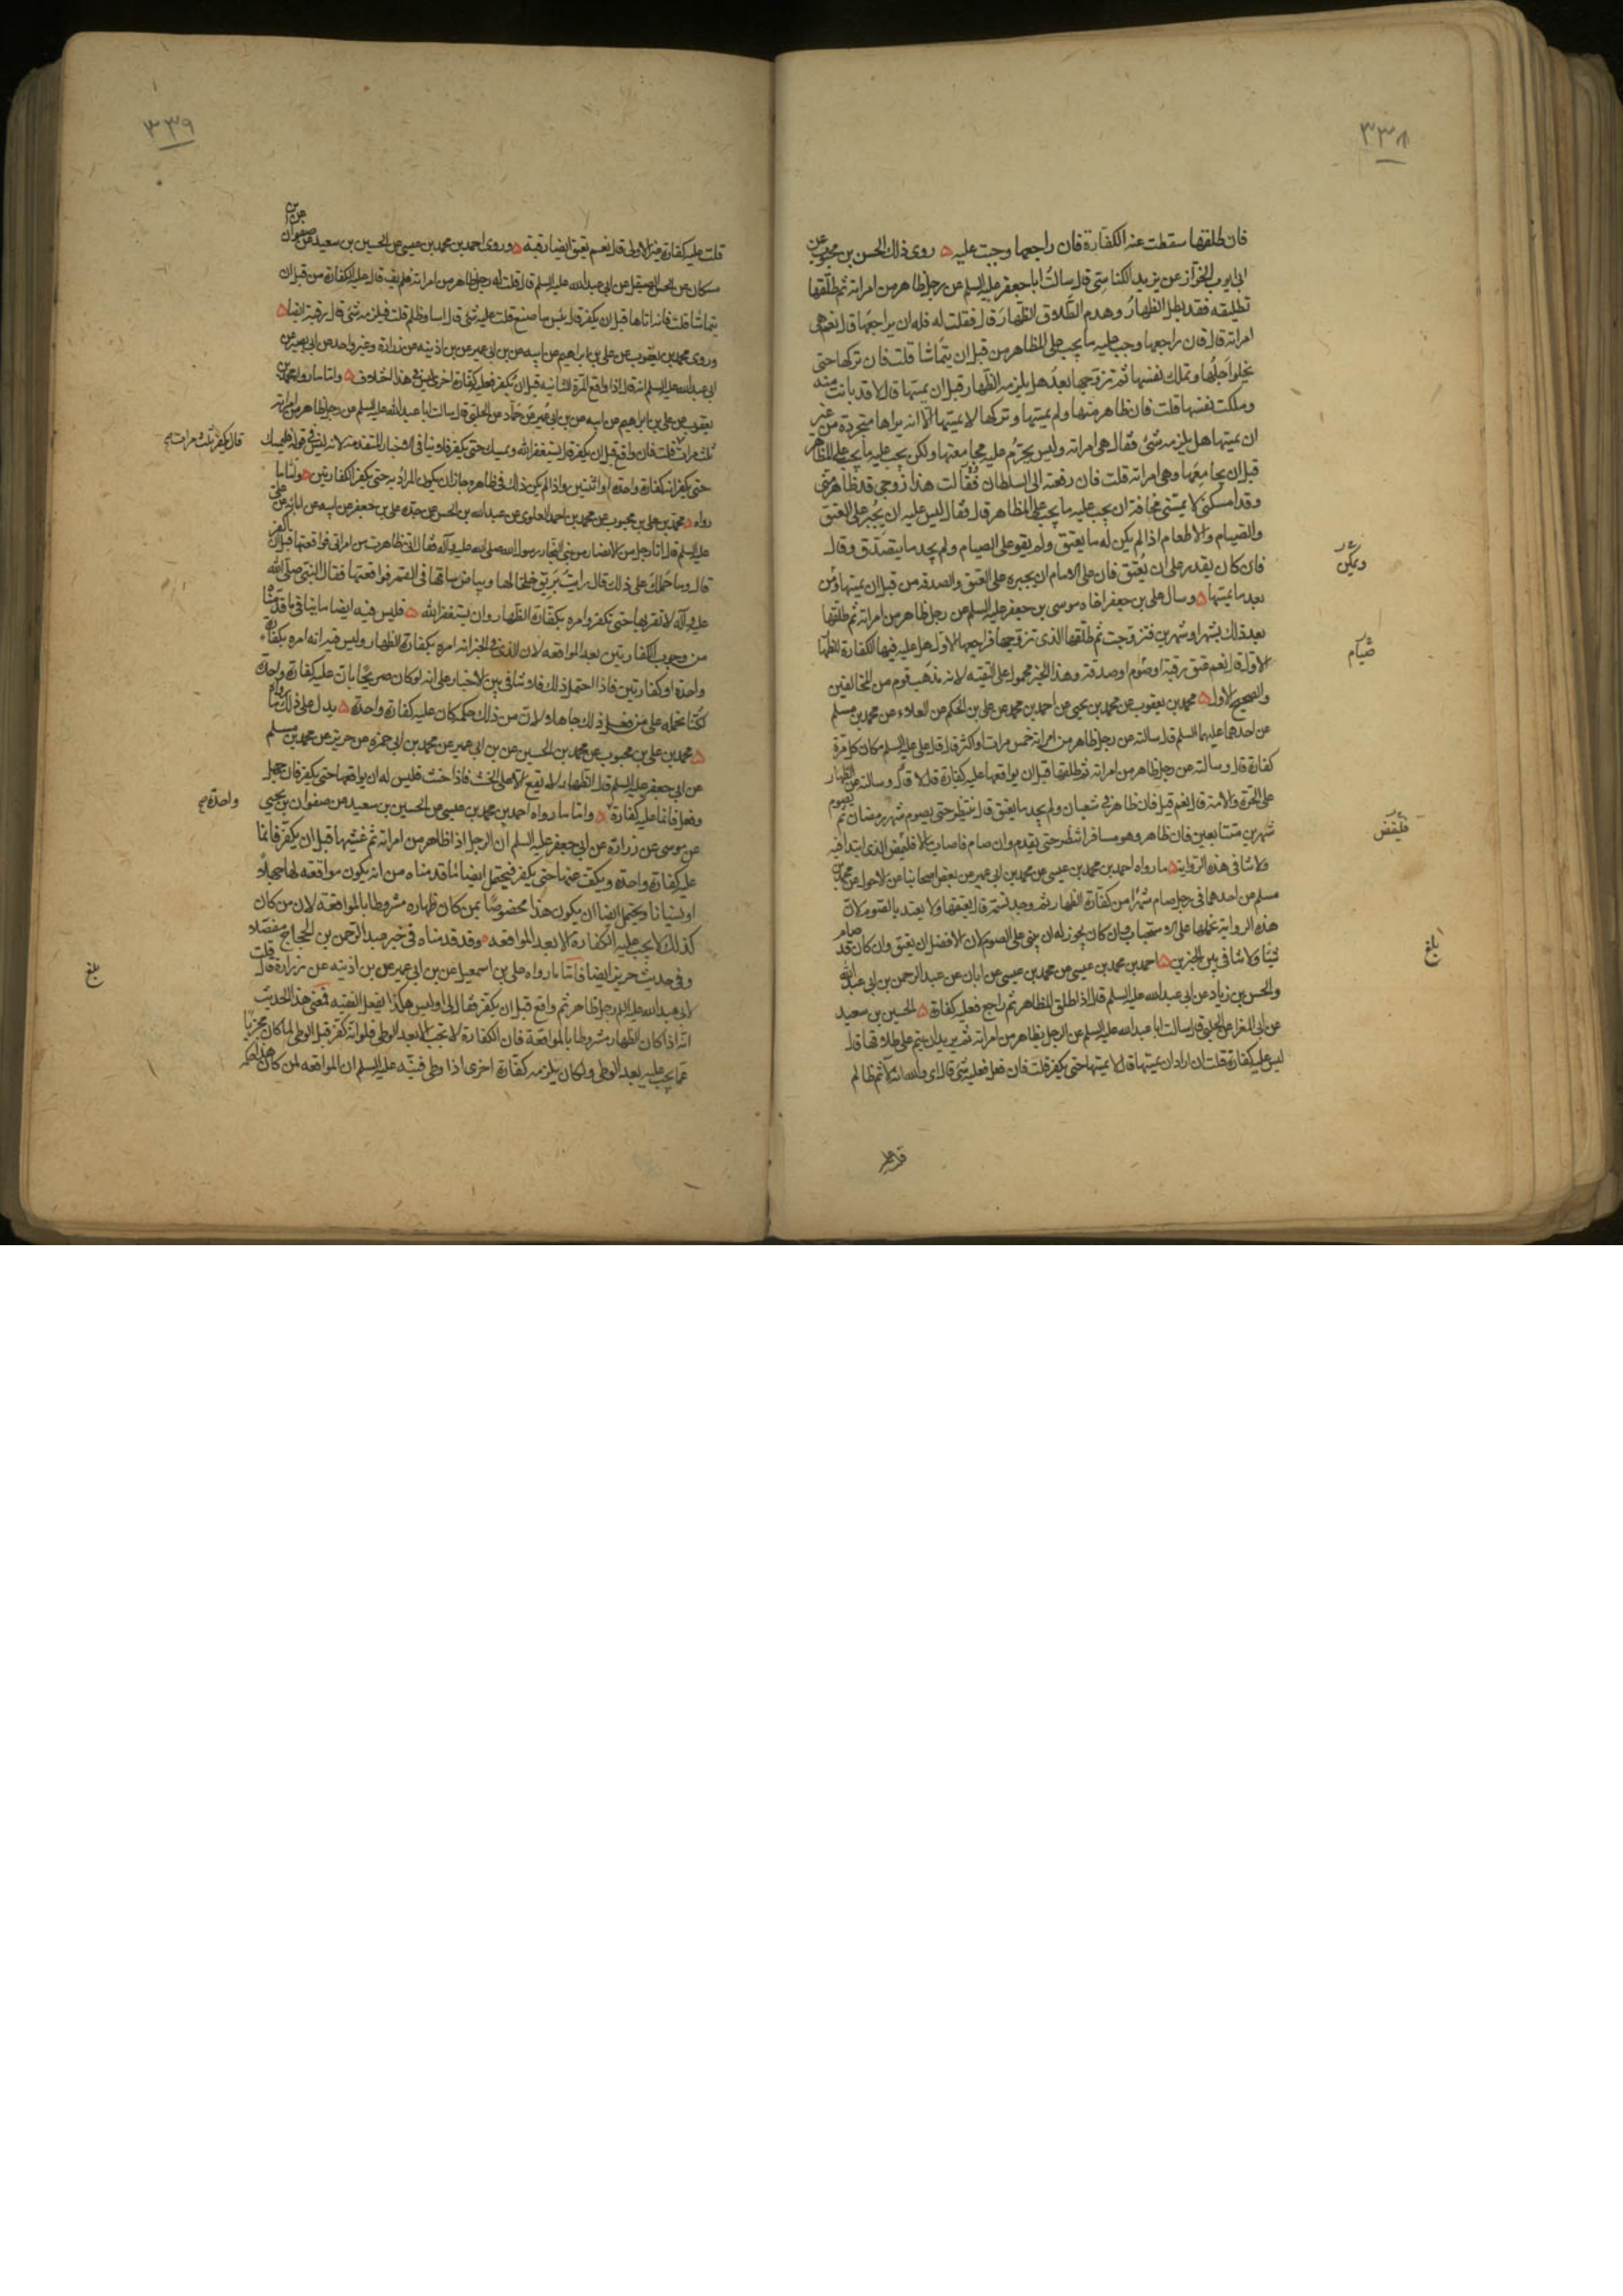 ٣٣٨
فان طلقها سقطت عنه الكفارة فان راجعها وجبت عليه ۵ روى ذلك الحسن بن محبوب عن
ابى ايوب الخزاز عن يزيد الكناسى قال سالت ابا جعفر عليه السلم عن رجل ظاهر من امراته ثم طلقها
تطليقه فقد بطل الظهار وهدم الطلاق الظهار قال فقلت له فله ان يراجعها قال نعم هى
امراته قال فان راجعها وجب عليه ما يجب على المظاهر من قبل ان يتماسا قلت فان تركها حتى
يخلوا اجلها وتملك نفسها ثم تزوجها بعد هل يلزمه الظهار قبل ان يمسها قال لا قد بانت منه
وملكت نفسها قلت فان ظاهر منها ولم يمسها وتركها لا يمسها الا انه يراها متجردة من غير
ان يمسها هل يلزمه شئ فقال هى امراته وليس يحرم عليه مجامعتها ولكن يجب عليه ما يجب على المظاهر
قبل ان يجامعها وهى امراته قلت فان رفعته الى السلطان فقالت هذا زوجى قد ظاهر منى
وقد امسكنى لا يمسنى مخافة ان يجب عليه ما يجب على المظاهر قال فقال ليس عليه ان يجبر على العتق
والصيام والاطعام اذا لم يكن له ما يعتق ولم يقو على الصيام ولم يجد ما يتصدق وقال
فان كان يقدر على ان يعتق فان على الامام ان يجبره على العتق والصدقه من قبل ان يمسها ومن
بعد ما يمسها ۵ وسال على بن جعفر اخاه موسى بن جعفر عليه السلم عن رجل ظاهر من امراته ثم طلقها
بعد ذلك بشهر او شهرين فتزوجت ثم طلقها الذى تزوجها فراجعها الاول هل عليه فيها الكفارة للظهار
الاول قال نعم عتق رقبة او صوم او صدقة وهذا الخبر محمول على التقيه لانه مذهب قوم من المخالفين
والصحيح الاول ۵ محمد بن يعقوب عن محمد بن يحيى عن احمد بن محمد عن على بن الحكم عن العلاء عن محمد بن مسلم
عن احدهما عليهما السلم قال سالته عن رجل ظاهر من امراته خمس مرات او اكثر قال قال على عليه السلم مكان كل مرة
كفارة قال وسالته عن رجل ظاهر من امراته ثم طلقها قبل ان يواقعها عليه كفارة قال لا قال وسالته عن الظهار
على الحرة والامة قال نعم قيل فان ظاهر فى شعبان ولم يجد ما يعتق قال ينتظر حتى يصوم شهر رمضان ثم يصوم
شهرين متتابعين فان ظاهر وهو مسافر انتظر حتى يقدم وان صام فاصاب مالا فليمض الذى ابتدا فيه
ولا ينافى هذه الرواية ۵ ما رواه احمد بن محمد بن عيسى عن محمد بن ابى عمير عن بعض اصحابنا عن الاحول عن محمد بن
مسلم عن احدهما فى رجل صام شهرا من كفارة الظهار ثم وجد نسمة قال يعتقها ولا يعتد بالصوم لان
هذه الرواية نحملها على الاستحباب وان كان يجوز له ان يبنى على الصوم لان الافضل ان يعتق وان كان قد صام
شيئا ولا تنافى بين الخبرين ۵ احمد بن محمد بن عيسى عن محمد بن عيسى عن ابان عن عبد الرحمن بن ابى عبد الله
والحسن بن زياد عن ابى عبد الله عليه السلم قال اذا طلق المظاهر ثم راجع فعليه كفارة ۵ الحسين بن سعيد
عن ابى المغرا عن الحلبى قال سالت ابا عبد الله عليه السلم عن الرجل يظاهر من امراته ثم يريد ان يتم على طلاقها قال
ليس عليه كفارة قلت ان اراد ان يمسها قال لا يمسها حتى يكفر قلت فان فعل فعليه شئ قال اى والله انه لآثم ظالم
صيام
بلغ
٣٣٩
قلت عليه كفارة غير الاولى قال نعم يعتق ايضا رقبة ۵ وروى احمد بن محمد بن عيسى عن الحسين بن سعيد عن صفوان عن بن
مسكان عن الحسن الصيقل عن ابى عبد الله عليه السلم قال قلت له رجل ظاهر من امراته فلم يف قال عليه الكفارة من قبل ان
يتماسا قلت فانه اتاها قبل ان يكفر قال بئس ما صنع قلت عليه شئ قال اساء وظلم قلت فيلزمه شئ قال رقبة ايضا ۵
وروى محمد بن يعقوب عن على بن ابراهيم عن ابيه عن بن ابى عمير عن بن اذينه عن زرارة وغير واحد عن ابى بصير عن
ابى عبد الله عليه السلم انه قال اذا واقع المرة الثانيه قبل ان يكفر فعليه كفارة اخرى ليس فى هذا اختلاف ۵ واما ما رواه محمد بن
يعقوب عن على بن ابراهيم عن ابيه عن بن ابى عمير عن حماد عن الحلبى قال سالت ابا عبد الله عليه السلم عن رجل ظاهر من امراته
ثلث مرات قلت فان واقع قبل ان يكفر قال يستغفر الله ويمسك حتى يكفر فلا ينافى الاخبار المتقدمة لانه ليس فى قوله فليمسك
حتى يكفر انه كفارة واحدة او اثنتين واذا لم يكن ذلك فى ظاهره جاز ان يكون المراد به حتى يكفر الكفارتين ۵ واما ما
رواه ۵ محمد بن على بن محبوب عن محمد بن احمد العلوى عن عبد الله بن الحسن عن جده على بن جعفر عن ابيه عن ابائه عن على
عليه السلم قال اتا رجل من الانصار من بنى النجار رسول الله صلى الله عليه وآله فقال انى ظاهرت من امراتى فواقعتها قبل ان اكفر
قال وما حملك على ذلك قال رايت بريق خلخالها وبياض ساقها فى القمر فواقعتها فقال النبى صلى الله
عليه وآله لا تقربها حتى تكفر وامره بكفارة الظهار وان يستغفر الله ۵ فليس فيه ايضا ما ينافى ما قدمناه
من وجوب الكفارتين بعد المواقعه لان الذى فى الخبر انه امره بكفارة الظهار وليس فيه انه امره بكفارة
واحدة او كفارتين فاذا احتمل ذلك فلا تنافى بين الاخبار على انه لو كان صريحا بان عليه كفارة واحدة
لكنا نحمله على من فعل ذلك جاهلا لان من ذلك حكمه كان عليه كفارة واحدة ۵ يدل على ذلك ما رواه
۵ محمد بن على بن محبوب عن محمد بن الحسين عن بن ابى عمير عن محمد بن ابى حمزه عن حريز عن محمد بن مسلم
عن ابى جعفر عليه السلم قال الظهار لا يقع الا على الحنث فاذا حنث فليس له ان يواقعها حتى يكفر فان جهل
وفعل فانما عليه كفارة ۵ واما ما رواه احمد بن محمد بن عيسى عن الحسين بن سعيد عن صفوان بن يحيى
عن موسى عن زرارة عن ابى جعفر عليه السلم ان الرجل اذا ظاهر من امراته ثم غشيها قبل ان يكفر فانما
عليه كفارة واحدة ويكف عنها حتى يكفر فيحتمل ايضا ما قدمناه من انه يكون مواقعته لها جهلا
او نسيانا ويحتمل ايضا ان يكون هذا مخصوصا بمن كان ظهاره مشروطا بالمواقعة لان من كان
كذلك لا يجب عليه الكفارة الا بعد المواقعه ۵ وقد قدمناه فى خبر عبد الرحمن بن الحجاج مفصلا
وفى حديث حريز ايضا فاما ما رواه على بن اسمعيل عن بن ابى عمير عن بن اذينه عن زرارة قال قلت
لابى عبد الله عليه السلم رجل ظاهر ثم واقع قبل ان يكفر فقال لى اوليس هكذا يفعل الفقيه فمعنى هذا الحديث
انه اذا كان الظهار مشروطا بالمواقعة فان الكفارة لا تجب الا بعد الوطى فلو انه كفر قبل الوطى لما كان مجزيا
عما يجب عليه بعد الوطى ولكان يلزمه كفارة اخرى اذا وطى فنبه عليه السلم ان المواقعه لمن كان هذا حكمه
قال يكفر ثلث مرات صح
واحدة صح
بلغ